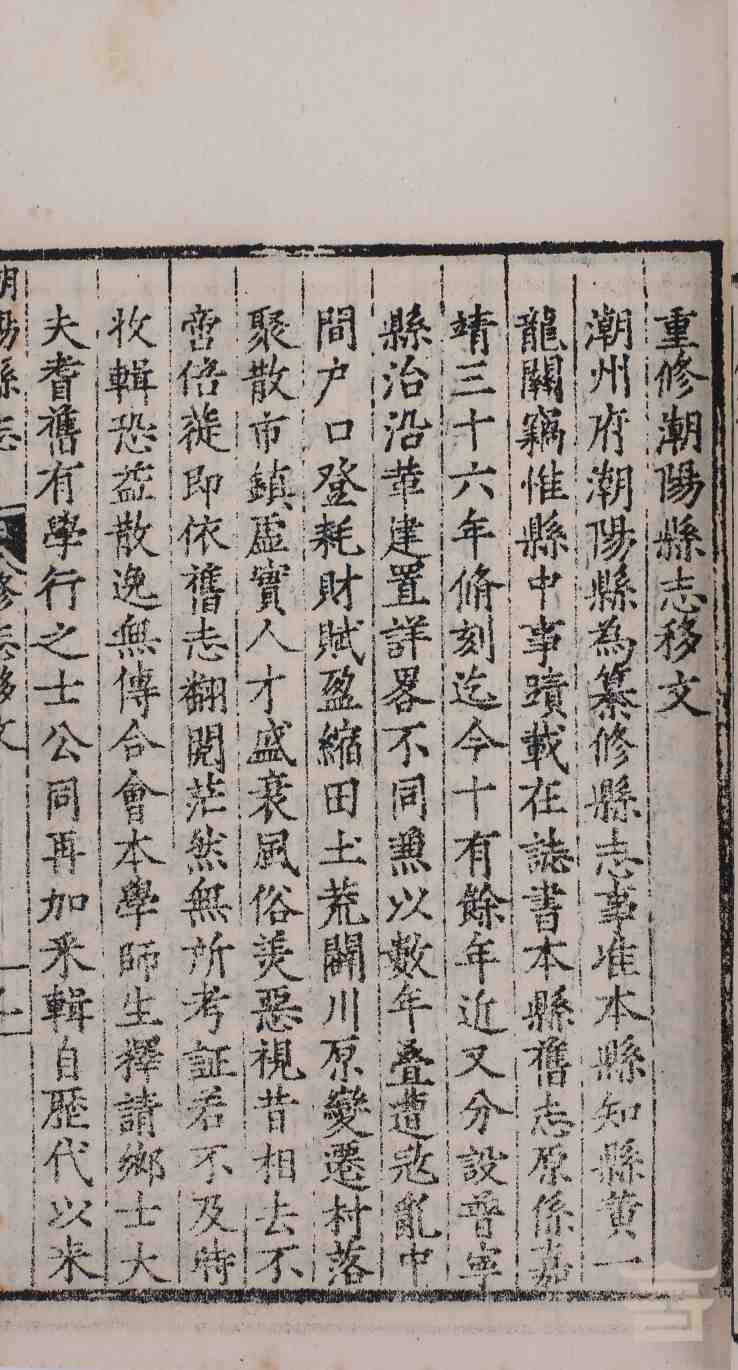 重修潮陽縣志移文
潮州府潮陽縣為纂修縣志事准本縣知縣黃一
龍關竊惟縣中事蹟載在誌書本縣舊志原係嘉
靖三十六年脩刻迄今十有餘年近又分設普寧
縣治沿革建置詳畧不同兼以數年疊遭寇亂中
間户口登耗財賦盈縮田土荒闢川原變遷村落
聚散市鎮虛實人才盛衰風俗美惡視昔相去不
啻倍蓰即依舊志翻閱茫然無所考証若不及時
收輯恐益散逸無傳合會本學師生擇請鄉士大
夫耆舊有學行之士公同再加采輯自歷代以来
潮陽縣志
修志移文